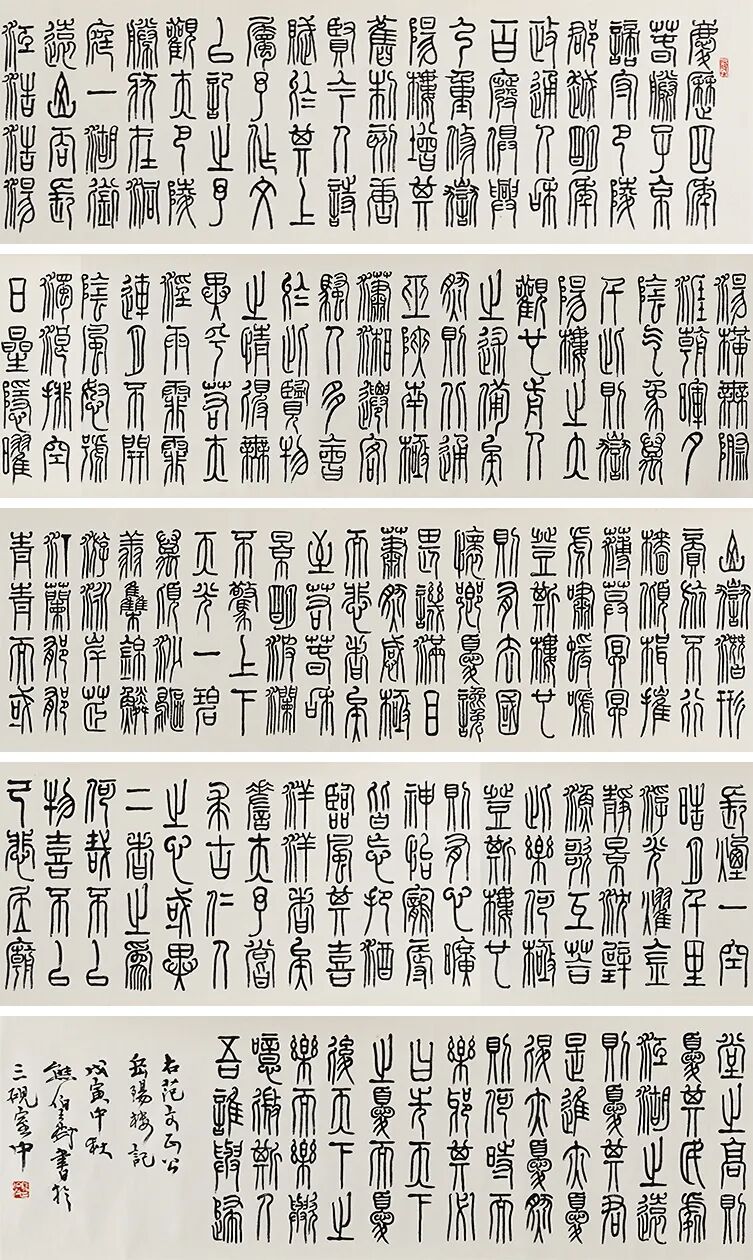 慶歷四年
春滕子京
謫守巴陵
郡越明年
政通人和
百廢俱興
乃重修嶽
陽樓增其
舊制刻唐
賢今人詩
賦於其上
屬予作文
以記之予
觀夫巴陵
勝狀在洞
庭一湖銜
遠山吞長
江浩浩湯
湯橫無際
涯朝暉夕
陰气象萬
千此則嶽
陽樓之大
觀也前人
之述備矣
然則北通
巫陝南極
瀟湘遷客
騷人多會
於此覽物
之情得無
異乎若夫
淫雨霏霏
連月不開
陰風怒號
濁浪排空
日星隱曜
山嶽潛形
商旅不行
檣傾楫摧
薄暮冥冥
虎嘯蝯嗁
登斯樓也
則有去國
懷鄉憂讒
畏譏滿目
蕭然感極
而悲者矣
至若春和
景明波瀾
不驚上下
天光一碧
萬頃沙鷗
翔集錦鱗
游泳岸芷
汀蘭郁郁
青青而或
長煙一空
皓月千里
浮光耀金
靜景沈璧
漁歌互答
此樂何極
登斯樓也
則有心曠
神怡寵辱
皆忘把酒
臨風其喜
洋洋者矣
嗟夫予嘗
求古仁人
之心或異
二者之為
何哉不以
物喜不以
己悲居廟
堂之高則
憂其民處
江湖之遠
則憂其君
是進亦憂
退亦憂然
則何時而
樂耶其必
曰先天下
之憂而憂
後天下之
樂而樂歟
噫微斯人
吾誰與歸
右范文正公
岳陽樓記
戊寅中秋
熊伯齊書於
三硯室中